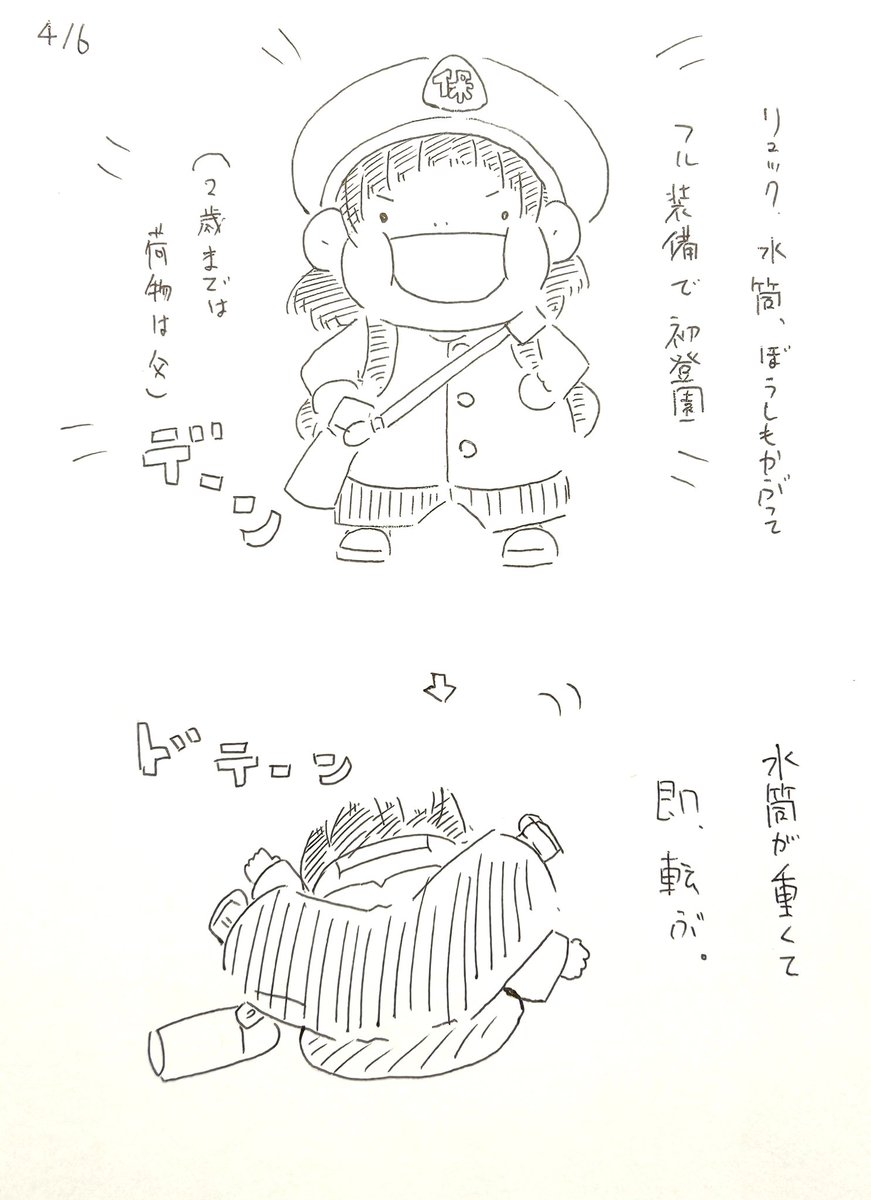 4/6
保
リュック、水筒、ぼうしもかぶって
フル装備で初登園
(2歳までは
荷物は父)
デーン
水筒が重くて
即、転ぶ。
ドテーン